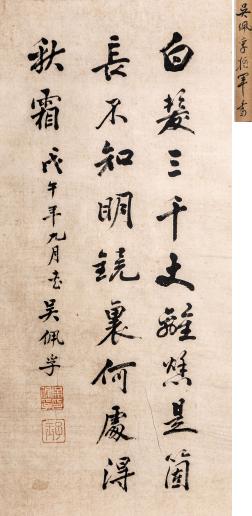 白髮三千丈離愁是箇
長不知明鏡裏何處得
秋霜 戊午年九月書 吳佩孚
吳佩孚將軍書